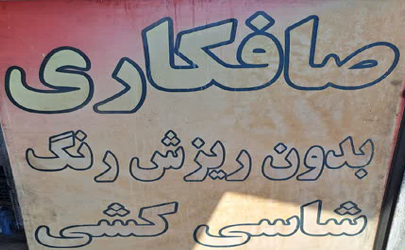 صافکاری
بدون ریزش رنگ
شاسی کشی